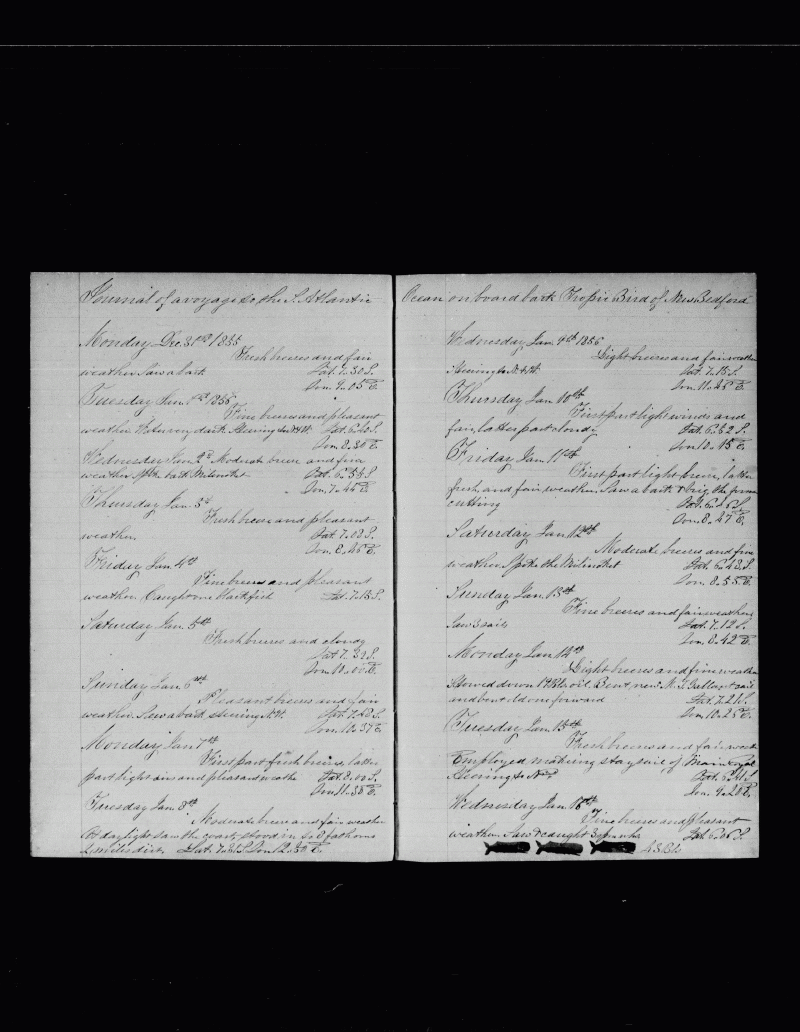 Journal of a voyage to the S. Atlantic
Monday Dec. 31st 1855
Fresh breeses and fair
weather. Saw a bark Lat. 7.30 S.
Lon. 9.05 E.
Tuesday Jan. 1st 1856
Fine breese and pleasant
weather. Water very dark. Steering
Lon. 8.30 E.
Wednesday Jan. 2d Moderate breese and fair
weather. Spoke bark
Lon. 7.45 E.
Thursday Jan. 3d
Fresh breese and pleasant
weather. Lat. 7.03 S.
Lon. 8.45 E.
Friday Jan. 4th
Fine breeses and pleasant
weather. Caught one blackfish Lat. 7.15 S.
Saturday Jan. 5th
Fresh breeses and cloudy
Lat. 7.32 S.
Lon. 10.00 E.
Sunday Jan. 6th
Pleasant breeses and fair
weather. Saw a bark, steering Lat. 7.23 S.
Lon. 10.37 E.
Monday Jan. 7th
First part fresh breeses, latter
part light airs and pleasant weather Lat. 8.00 S.
Lon. 11.38 E.
Tuesday Jan. 8th
Moderate breese and fair weather
At daylight saw the coast, stood in to fathoms
miles dist. Lat. Lon. 12. E.
Ocean on board bark Tropic Bird of New Bedford
Wednesday Jan. 9th 1856
Light breeses and fair weather
Steering to Lat. 7.15 S.
Lon. 11.45 E.
Thursday Jan. 10th
First part light winds and
fair, latter part cloudy Lat. 6.52 S.
Lon. 10.15 E.
Friday Jan. 11th
First part light breese, latter
fresh, and fair weather. Saw a bark & brig, the former
cutting Lat. 6.25 S.
Lon. 8.47 E.
Saturday Jan. 12th
Moderate breeses and fine
weather. Spoke the Lat. 6.43 S.
Lon. 8.55 E.
Sunday Jan. 13th
Fine breeses and fair weather,
Saw 3 sails Lat. 7.12 S.
Lon. 8.42 E.
Monday Jan. 14th
Light breeses and fine weather
Stowed down oil. Bent new sail
and bent old one forward Lat. 7.21 S.
Lon. 10.25 E.
Tuesday Jan. 15th
Fresh breese and fair weath
Employed making stay sail of Main royal
Steering to Lat. 6.41 S.
Lon. 9.20 E.
Wednesday Jan. 16th
Fine breeses and pleasant
weather. Saw & caught 3 Lat. 6.06 S.